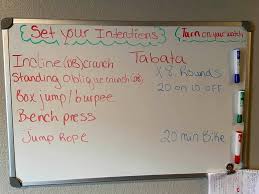 Set your Intentions
Turn on your watch
Tabata
Incline (DB) crunch
X 8 Rounds
Standing Oblique crunch (DB)
20 on 10 off
Box jump/burpee
Bench press
Jump Rope
20 min Bike